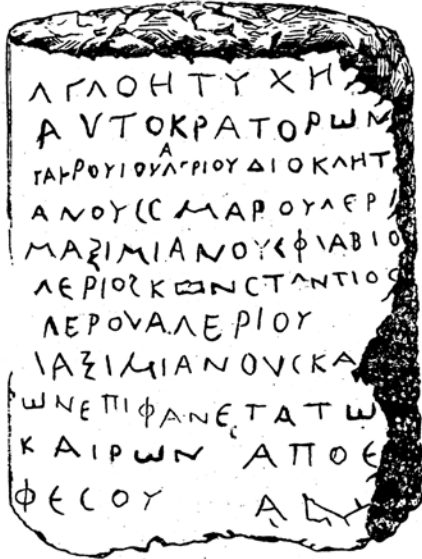 ΛΓΛΟΗΤΥΧΗ
ΑVΤΟΚΡΑΤΟΡωΝ
ΤΑΙΡΟΥΙΟΥΛΕΡΙΟΥΔΙΟΚΛΗΤ
ΑΝΟΥϹϹΜΑΡΟΥΛΕΡΙ
ΜΑΞΙΜΙΑΝΟΥϚΦΙΑΒΙΟ
ΛΕΡΙΟϚΚΩΝϹΤΛΝΤΙΟϹ
ΛΕΡΟVΑΛΕΡΙΟΥ
ΙΑΞΙΜΙΑΝΟVϹΚΑ
ωΝΕΠΙΦΑΝΕΤΑΤω
ΚΑΙΡωΝ ΑΠΟΕ
ΦΕϹΟΥ Α